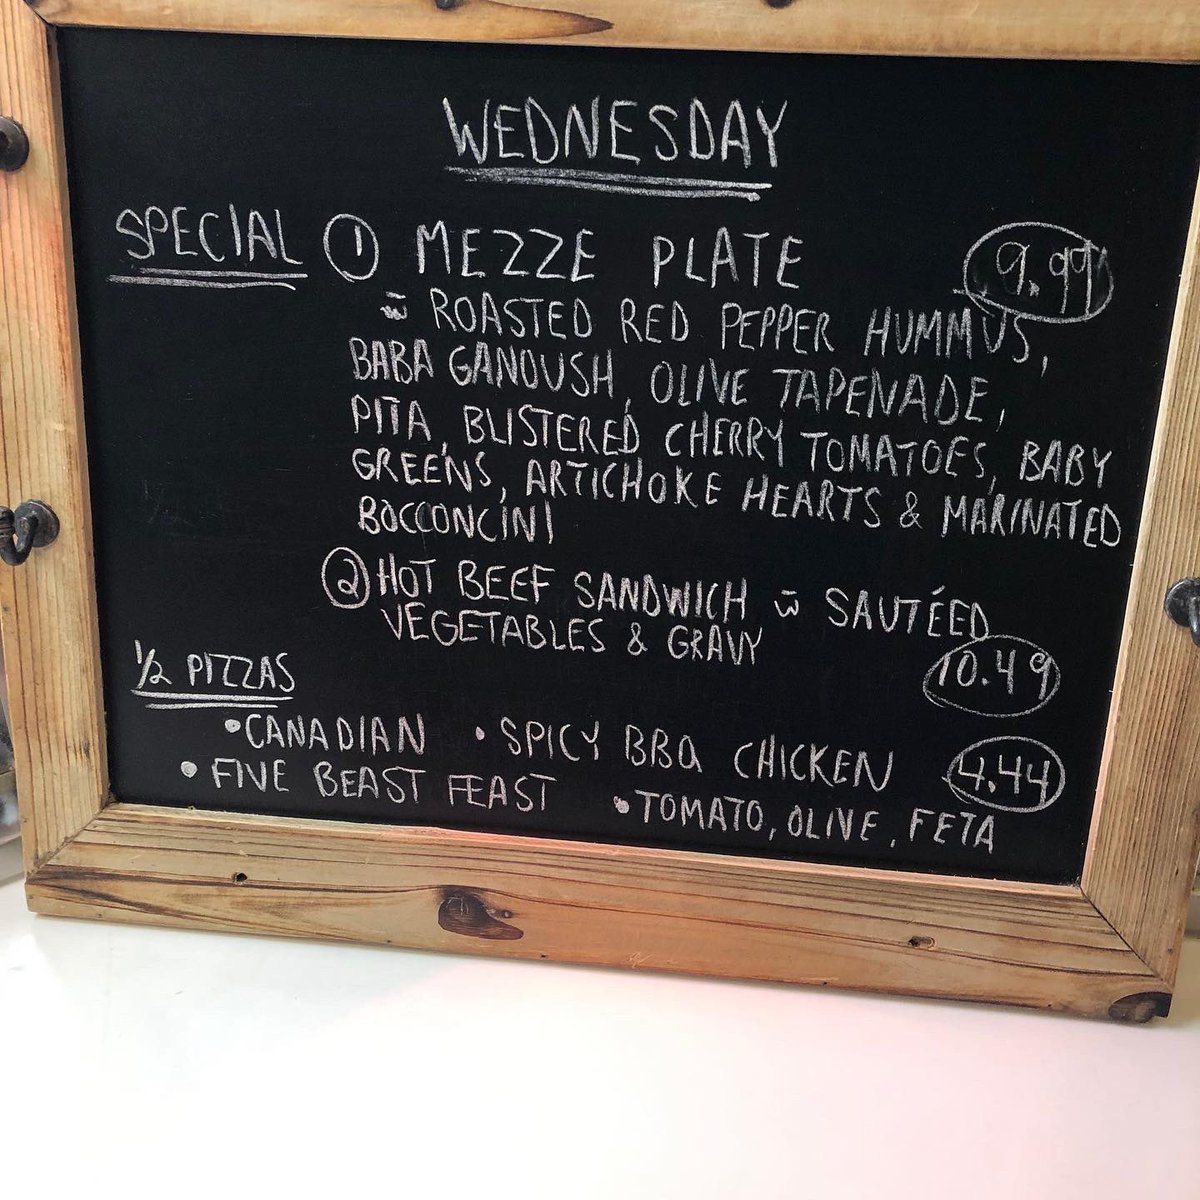 WEDNESDAY
SPECIAL ① MEZZE PLATE 9.99
w̄ ROASTED RED PEPPER HUMMUS,
BABA GANOUSH, OLIVE TAPENADE,
PITA, BLISTERED CHERRY TOMATOES, BABY
GREENS, ARTICHOKE HEARTS & MARINATED
BOCCONCINI
② HOT BEEF SANDWICH w̄ SAUTÉED
VEGETABLES & GRAVY 10.49
1/2 PIZZAS
• CANADIAN • SPICY BBQ CHICKEN 4.44
• FIVE BEAST FEAST • TOMATO, OLIVE, FETA